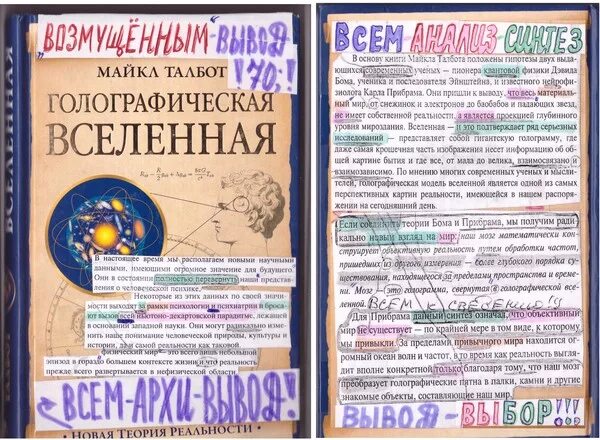 "ВОЗМУЩЁННЫМ"-ВЫВОД
!70,!
МАЙКЛ ТАЛБОТ
ГОЛОГРАФИЧЕСКАЯ
ВСЕЛЕННАЯ
В настоящее время мы располагаем новыми научными
данными, имеющими огромное значение для будущего.
Они в состоянии полностью перевернуть наши предст
ления о человеческой психике,
Некоторые из этих данных по своей значи
мости выходят за рамки психологии и психиатрии и броса-
ют вызов всей ньютоно-декартовой парадигме, лежащей
в основании западной науки. Они могут радикально изме-
нить наше понимание человеческой природы, культуры и
истории, да и самой реальности как таковой.
физический мир - это всего лишь небольшой
эпизод в гораздо большем контексте жизни
прежде всего развертывается в нефизической области.
ВСЕМ-АРХИ-ВЫВОД!
• НОВАЯ ТЕОРИЯ РЕАЛЬНОСТИ •
ВСЕМ АНАЛИЗ-СИНТЕЗ
В основу книги Майкла Талбота положены гипотезы двух выда-
ющихся современных ученых — пионера квантовой физики Дэвида
Бома, ученика и последователя Эйнштейна, и известного нейрофи-
зиолога Карла Прибрама. Они пришли к выводу, что весь материаль-
ный мир, от снежинок и электронов до баобабов и падающих звезд,
не имеет собственной реальности, а является проекцией глубинного
уровня мироздания. Вселенная — и это подтверждает ряд серьезных
исследований — представляет собой гигантскую голограмму, где
даже самая крошечная часть изображения несет информацию об об-
щей картине бытия и где все, от мала до велика, взаимосвязано и
взаимозависимо. По мнению многих современных ученых и мысли-
телей, голографическая модель вселенной является одной из самых
перспективных картин реальности, имеющейся в нашем распоря-
жении на сегодняшний день.
Если соединить теории Бома и Прибрама, мы получим ради
кально новый взгляд на мир: наш мозг математически кон-
струирует объективную реальность путем обработки частот,
пришедших из другого измерения — более глубокого порядка су-
ществования, находящегося за пределами пространства и време-
ни. Мозг — это голограмма, свернутая в голографической все-
ленной.
ВСЕМ К СВЕДЕНИЮ!
Для Прибрама данный синтез означал, что объективный
мир не существует — по крайней мере в том виде, к которому
мы привыкли. За пределами привычного мира находится ог-
ромный океан волн и частот, в то время как реальность выгля-
дит вполне конкретной только благодаря тому, что наш мозг
преобразует голографические пятна в палки, камни и другие
знакомые объекты, составляющие наш мир.
ВЫВОД-ВЫБОР!!!